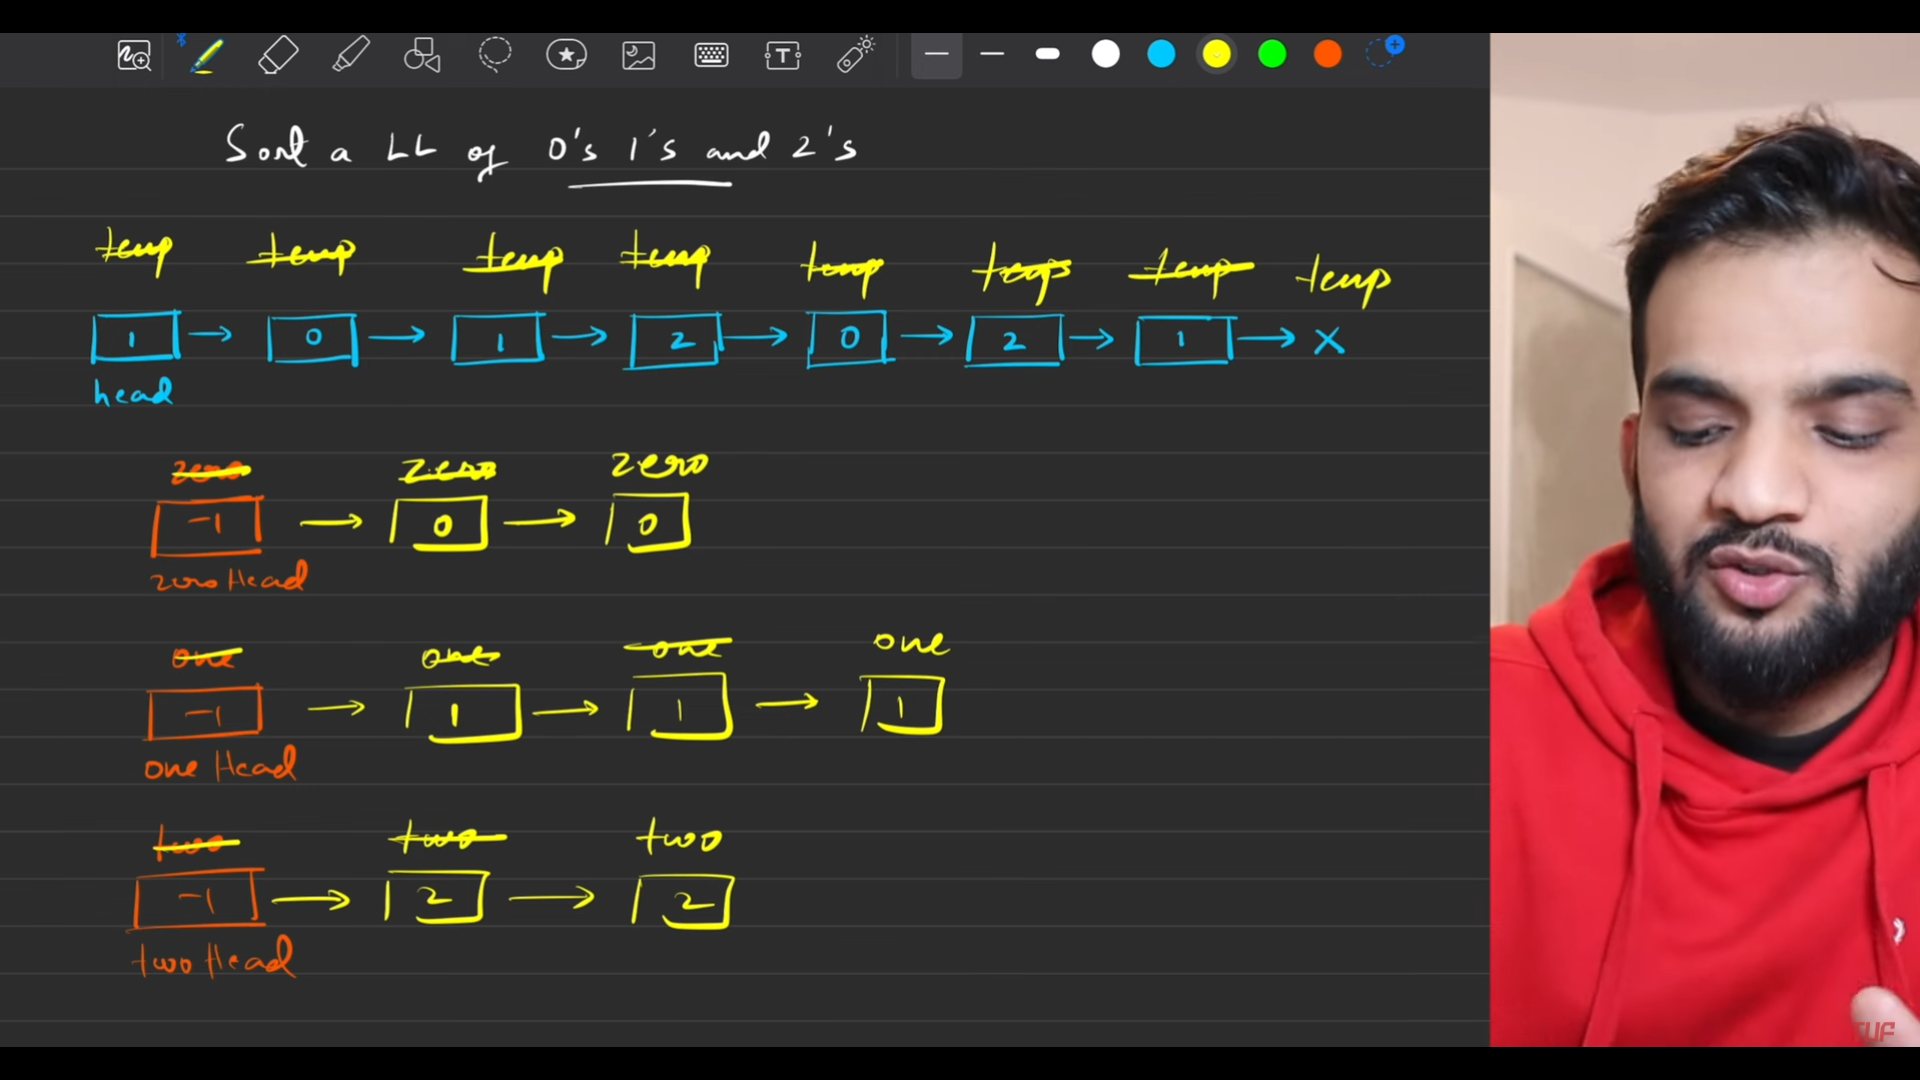 Sort a LL of 0's 1's and 2's
temp temp temp temp temp temp temp temp
1 → 0 → 1 → 2 → 0 → 2 → 1 → X
head
zero zero zero
-1 → 0 → 0
zero Head
one one one one
-1 → 1 → 1 → 1
one Head
two two two
-1 → 2 → 2
two Head
TUF